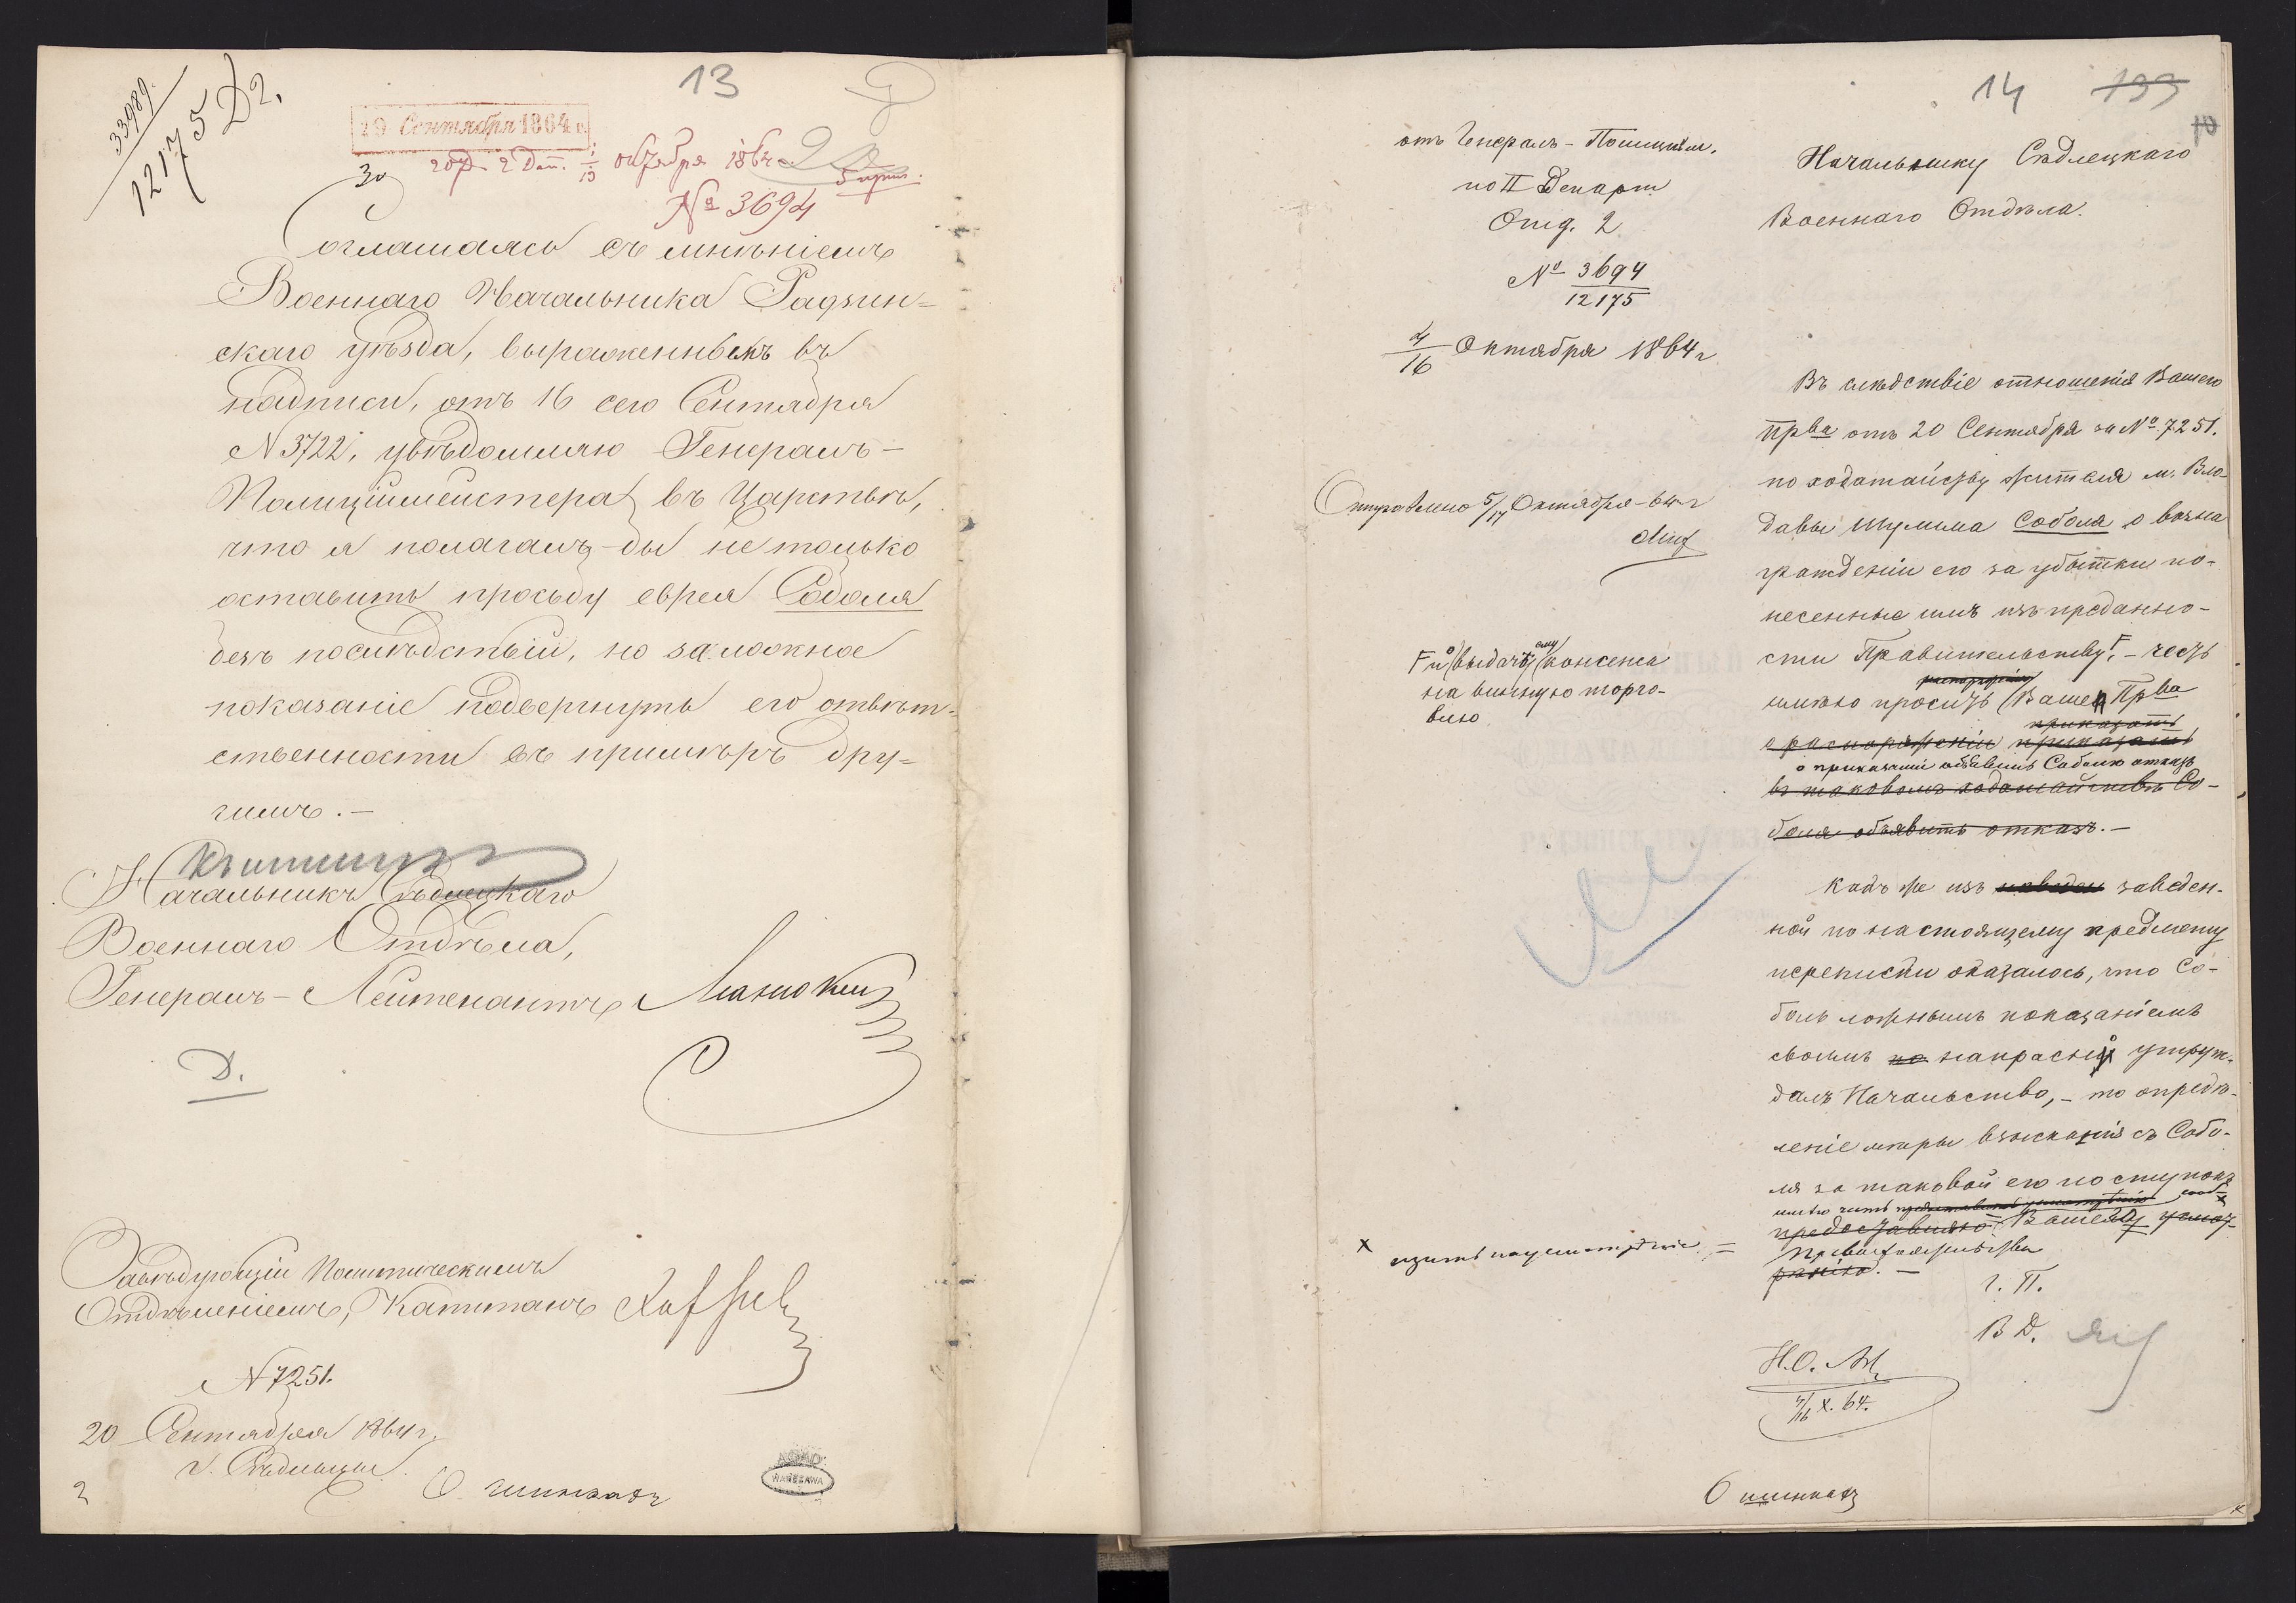 33989
12175 Д2.
13
29 Сентября 1864 г.
30
2 Деп. 1/13 октября 1864
№ 3694
Соглашаясь съ мнѣніемъ
Военнаго Начальника Радзин-
скаго уѣзда, выраженнымъ въ
надписи, отъ 16 сего Сентября
N 3722, увѣдомляю Генералъ-
Полиціймейстера въ Царствѣ,
что я полагалъ-бы не только
оставить просьбу еврея Соболя
безъ послѣдствій, но за ложное
показаніе подвергнуть его отвѣт-
ственности въ примѣръ дру-
гимъ.—
Начальникъ Сѣдлецкаго
Военнаго Отдѣла,
Генералъ-Лейтенантъ
Д.
Завѣдующій Политическимъ
Отдѣленіемъ, Капитанъ
N 7251.
20 Сентября 1864 г.
г. Сѣдльцы.
2
AGAD
WARSZAWA
14 133
10
отъ Генералъ-Полицыйм.
по II Департ
Отд. 2
№ 3694
12175
4/16 Октября 1864 г
Отправлено 5/17 Октября 64 г
Начальнику Сѣдлецкаго
Военнаго Отдѣла.
Въ слѣдствіе отношенія Вашего
Прва отъ 20 Сентября за № 7251.
по ходатайству жителя м. Вло-
давы Шулима Соболя о возна
гражденіи его за убытки по-
несенные имъ изъ преданно-
сти Правительству, – честь
и выдачѣ ему консенса
на винную торго-
влю
имѣю просить Вашего Прва
о распоряженіи приказать
о приказаніи объявить Соболю отказъ
въ таковомъ ходатайствѣ Со-
боля объявить отказъ.—
Какъ же изъ заведен-
ной по настоящему предмету
переписки оказалось, что Со-
боль ложнымъ показаніемъ
своимъ по напрасну утруж-
далъ Начальство, – то опредѣ-
леніе мѣры взысканія съ Собо-
ля за таковой его поступокъ
предоставляю Вашему усмот-
Превосходительства
рѣнію.—
Г. П.
В Д.
Н.О.
4/16 X. 64.